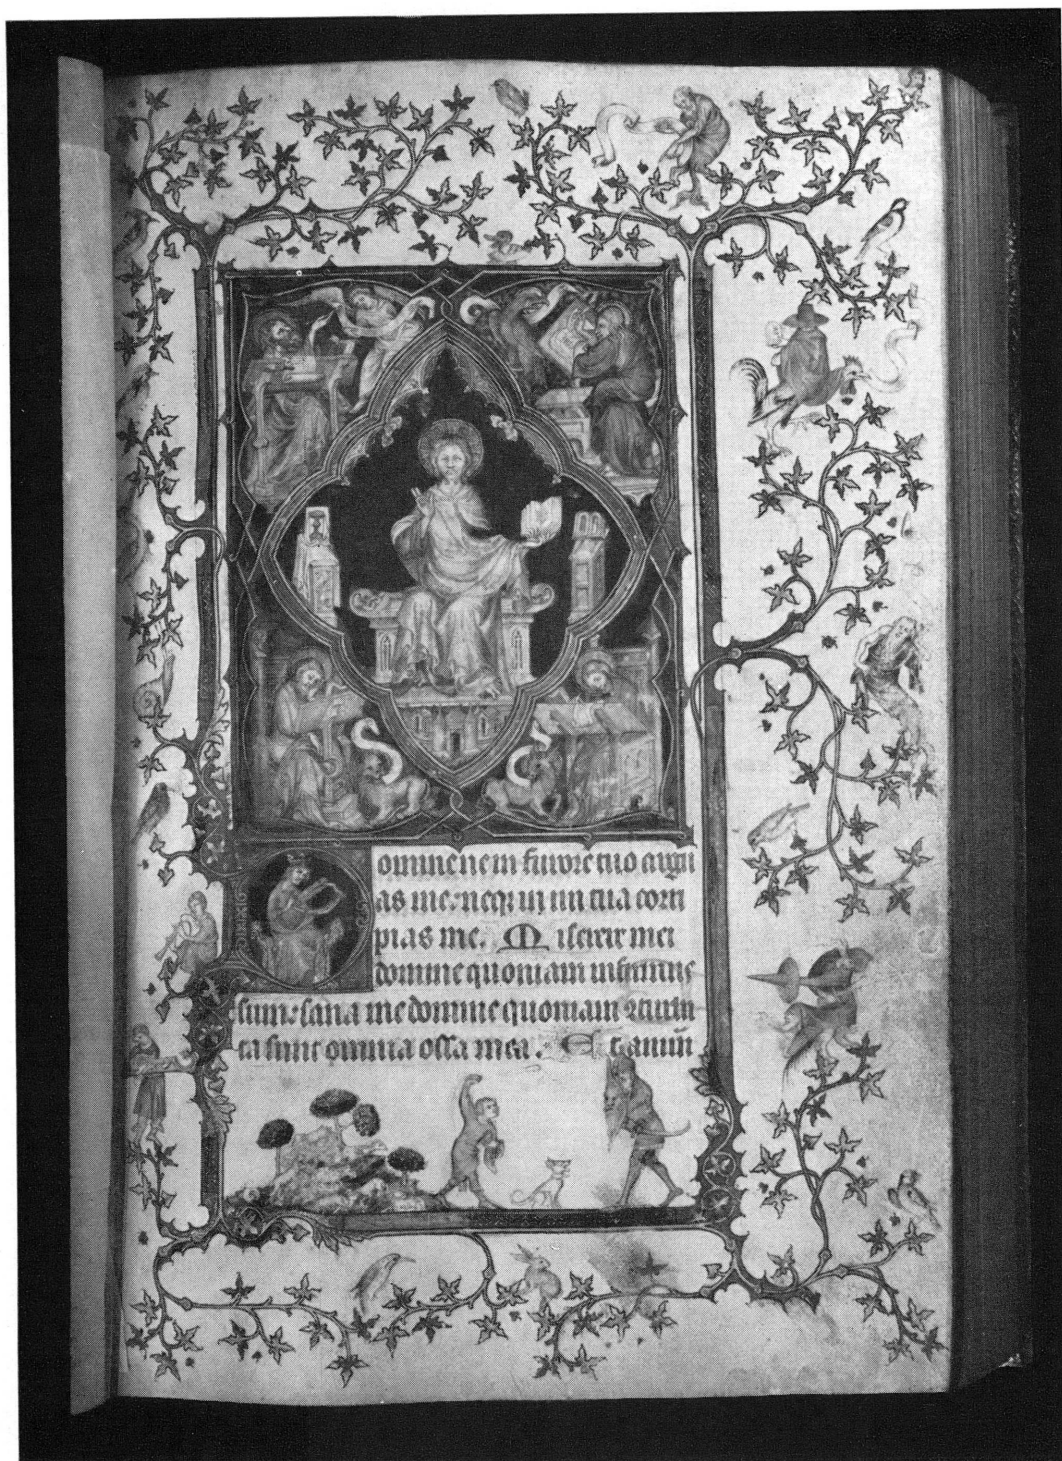 Domine ne in furore tuo argu
as me: neqꝫ in ira tua corri
pias me. Miserere mei
domine quoniam infirmus
sum: sana me domine quoniam ꝯturba
ta sunt omnia ossa mea. Et anim